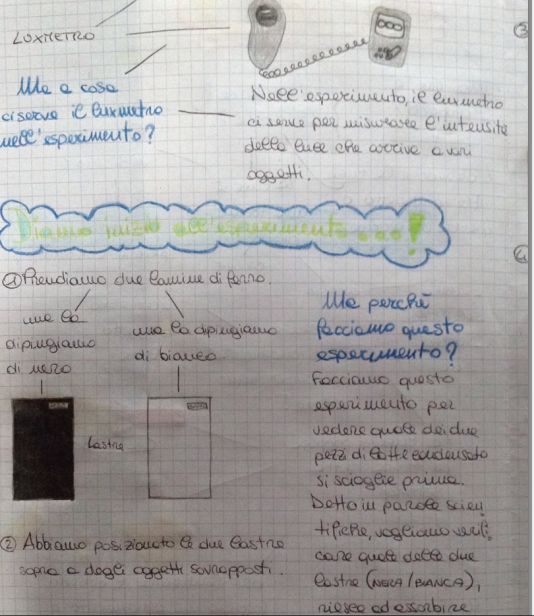 LUXMETRO
3
Ma a cosa
ci serve il luxmetro
nell'esperimento?
Nell'esperimento, il luxmetro
ci serve per misurare l'intensità
della luce che arriva a vari
oggetti.
Diamo inizio all'esperimento...!
4
① Prendiamo due lamine di ferro.
una la
dipingiamo
di nero
una la dipingiamo
di bianco
Lastre
② Abbiamo posizionato le due lastre
sopra a degli oggetti sovrapposti.
Ma perchè
facciamo questo
esperimento?
Facciamo questo
esperimento per
vedere quale dei due
pezzi di latte condensato
si scioglie prima.
Detto in parole scien
tifiche, vogliamo verifi
care quale delle due
lastre (NERA/BIANCA),
riesce ad assorbire